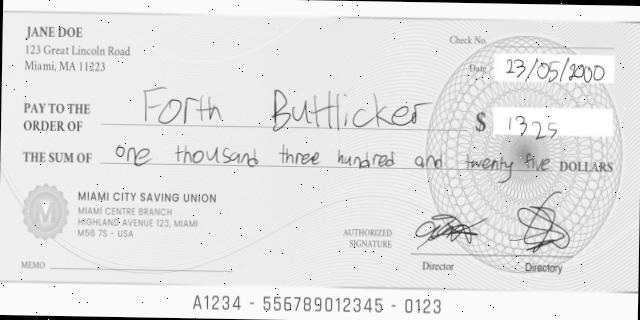 JANE DOE
123 Great Lincoln Road
Miami, MA 11223
Check No.
Date 23/05/2000
PAY TO THE
ORDER OF Forth Buttlicker $ 1325
THE SUM OF one thousand three hundred and twenty five DOLLARS
M
MIAMI CITY SAVING UNION
MIAMI CENTRE BRANCH
HIGHLAND AVENUE 123, MIAMI
M56 7S - USA
AUTHORIZED
SIGNATURE
Director
Directory
MEMO
A1234 - 556789012345 - 0123